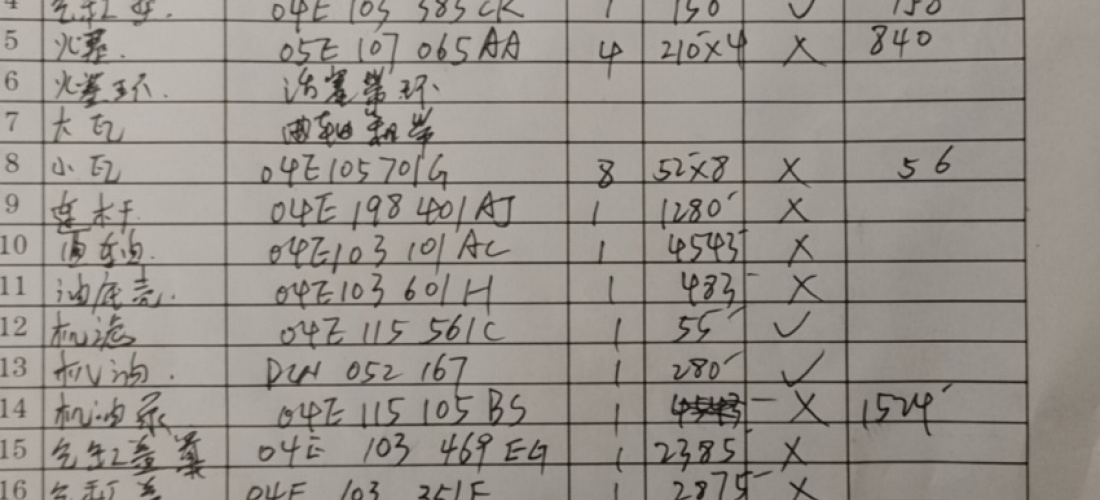 4 气缸垫 04E 103 383CK 1 150 ✓ 150
5 火塞. 05E 107 065AA 4 210×4 X 840
6 火塞环. 活塞带环
7 大瓦 曲轴
8 小瓦 04E105701G 8 52×8 X 56
9 连杆. 04E 198 401AJ 1 1280 X
10 曲轴. 04E103 101AC 1 4543 X
11 油底壳. 04E103 601H 1 483 X
12 机滤 04E 115 561C 1 55 ✓
13 机油. 052 167 1 280 ✓
14 机油泵 04E 115 105BS 1 X 1524
15 气缸盖 04E 103 469EG 1 2385 X
16 气缸盖 04E 103 351F 1 2875 X